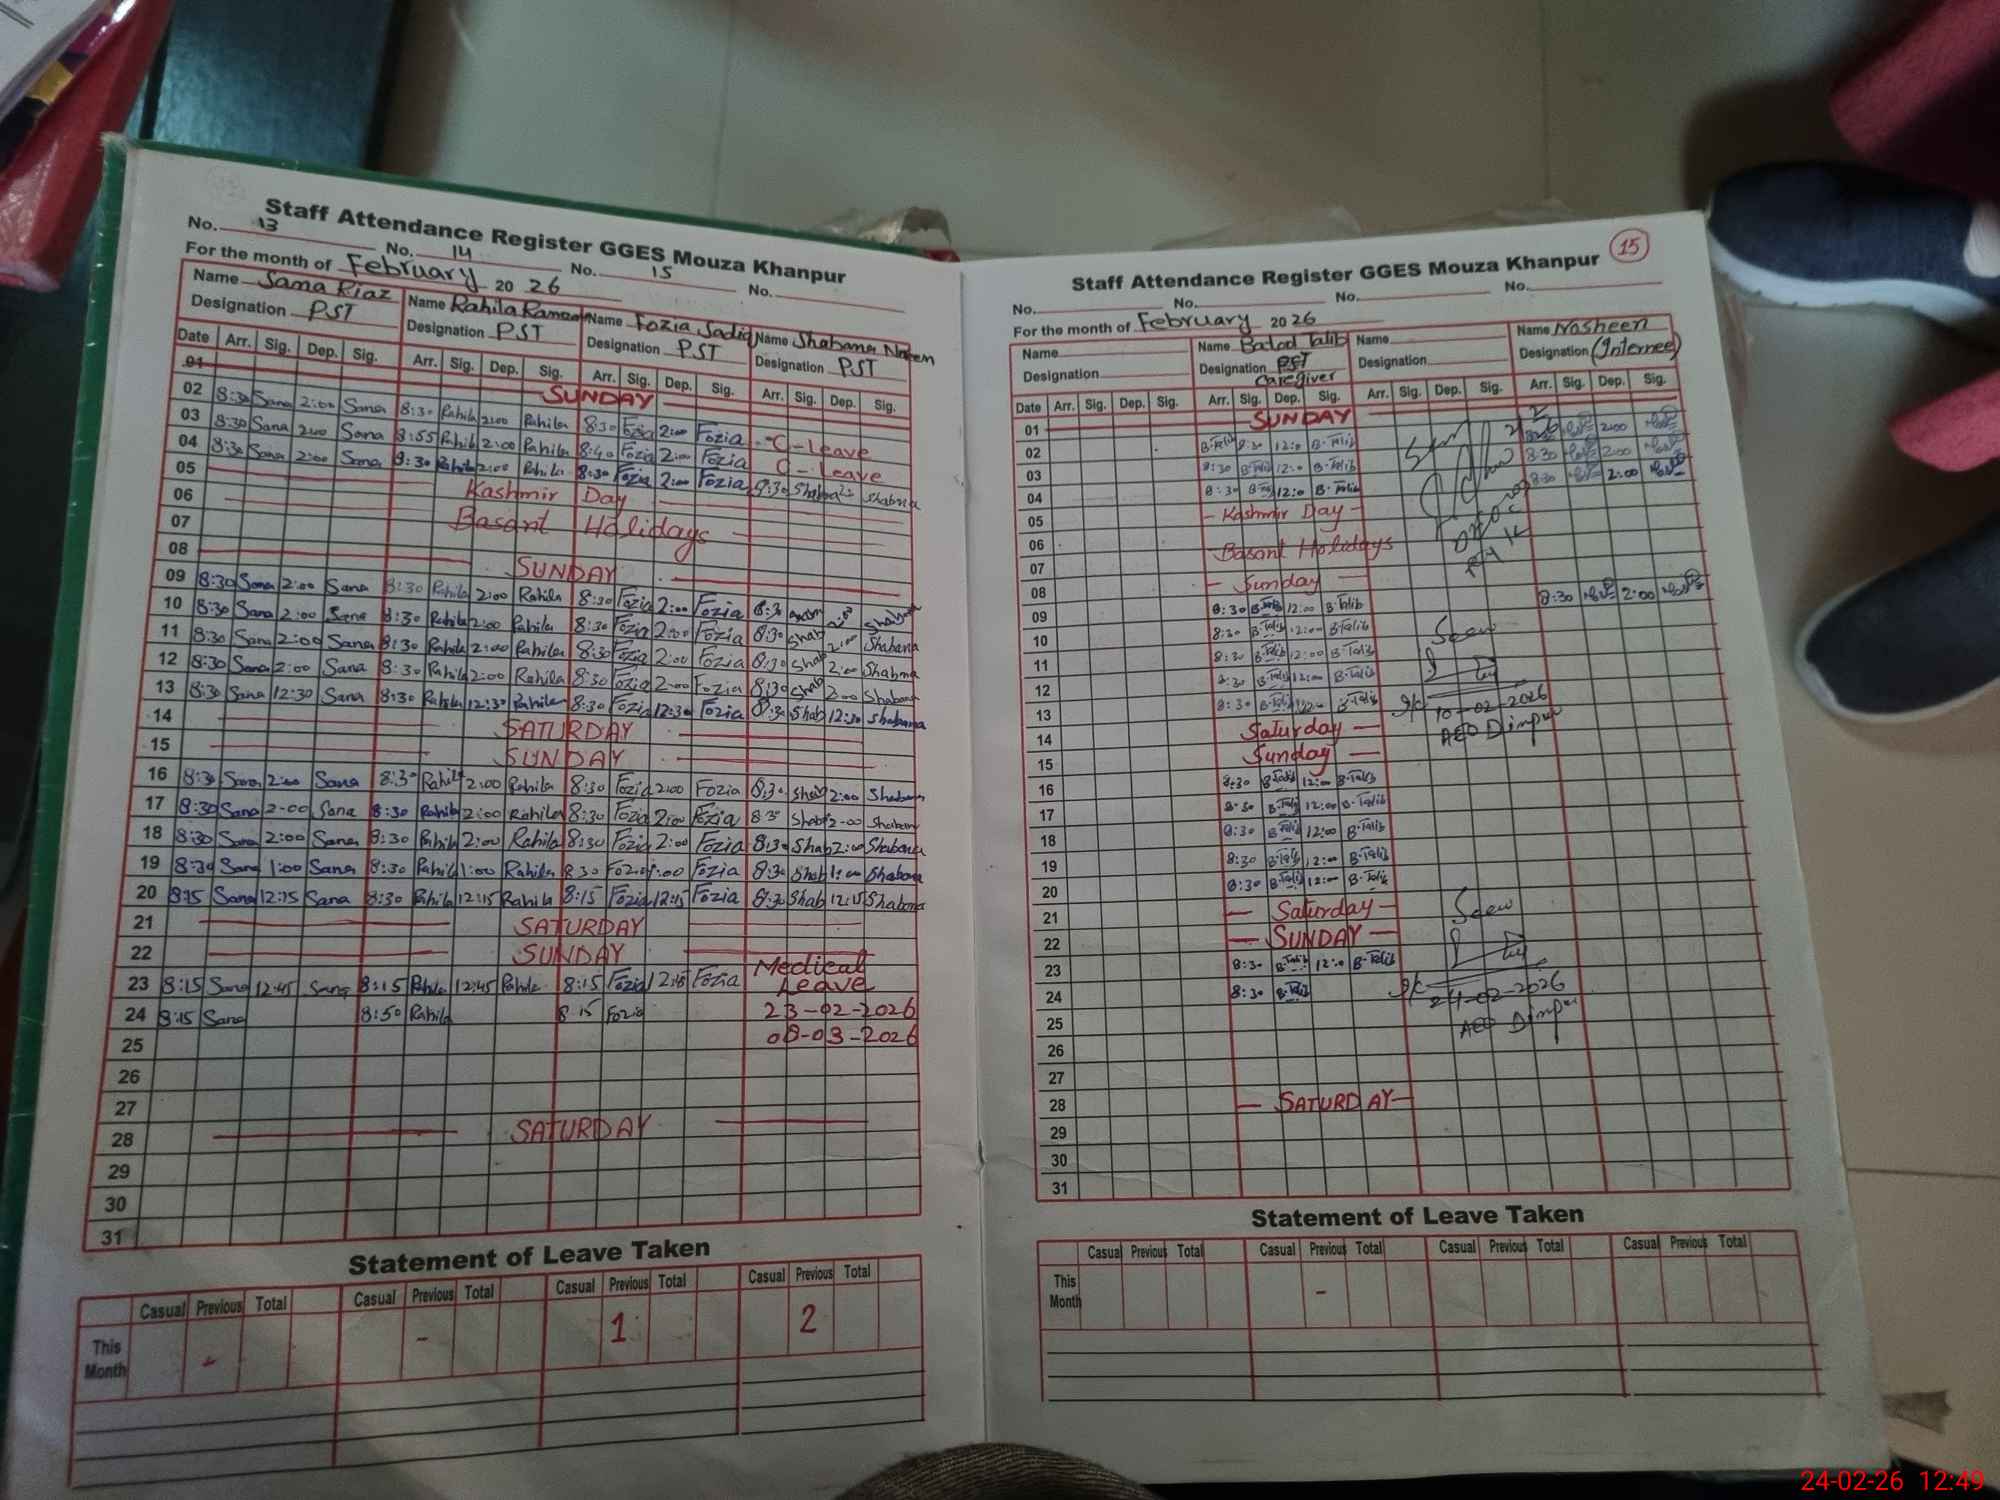 Staff Attendance Register GGES Mouza Khanpur
No. 13 No. 14 No. 15 No.
For the month of February 20 26
Name Sana Riaz Name Rahila Name Fozia Sadiq Name Shabana
Designation PST Designation PST Designation PST Designation PST
Date Arr. Sig. Dep. Sig. Arr. Sig. Dep. Sig. Arr. Sig. Dep. Sig. Arr. Sig. Dep. Sig.
01 SUNDAY
02 8:30 Sana 2:00 Sana 8:30 Rahila 2:00 Rahila 8:30 Fozia 2:00 Fozia C-leave
03 8:30 Sana 2:00 Sana 8:55 Rahila 2:00 Rahila 8:40 Fozia 2:00 Fozia C-Leave
04 8:30 Sana 2:00 Sana 8:30 Rahila 2:00 Rahila 8:30 Fozia 2:00 Fozia 8:30 Shabna
05 Kashmir Day
06 Basant Holidays
07
08 SUNDAY
09 8:30 Sana 2:00 Sana 8:30 Rahila 2:00 Rahila 8:30 Fozia 2:00 Fozia 8:30 2:00
10 8:30 Sana 2:00 Sana 8:30 Rahila 2:00 Rahila 8:30 Fozia 2:00 Fozia 8:30 Shab 2:00 Shabana
11 8:30 Sana 2:00 Sana 8:30 Rahila 2:00 Rahila 8:30 Fozia 2:00 Fozia 8:30 Shab 2:00 Shabna
12 8:30 Sana 2:00 Sana 8:30 Rahila 2:00 Rahila 8:30 Fozia 2:00 Fozia 8:30 Shab 2:00 Shabana
13 8:30 Sana 12:30 Sana 8:30 Rahila 12:30 Rahila 8:30 Fozia 12:30 Fozia 8:30 Shab 12:30 Shabana
14 SATURDAY
15 SUNDAY
16 8:30 Sana 2:00 Sana 8:30 Rahila 2:00 Rahila 8:30 Fozia 2:00 Fozia 8:30 Shab 2:00 Shabana
17 8:30 Sana 2:00 Sana 8:30 Rahila 2:00 Rahila 8:30 Fozia 2:00 Fozia 8:30 Shab 2:00
18 8:30 Sana 2:00 Sana 8:30 Rahila 2:00 Rahila 8:30 Fozia 2:00 Fozia 8:30 Shab 2:00 Shabana
19 8:30 Sana 1:00 Sana 8:30 Rahila 1:00 Rahila 8:30 Fozia 1:00 Fozia 8:30 Shab 1:00 Shabana
20 8:15 Sana 12:15 Sana 8:30 Rahila 12:15 Rahila 8:15 Fozia 12:15 Fozia 8:30 Shab 12:15 Shabana
21 SATURDAY
22 SUNDAY
23 8:15 Sana 12:45 Sana 8:15 Rahila 12:45 Rahila 8:15 Fozia 12:45 Fozia Medical Leave
24 8:15 Sana 8:50 Rahila 8:15 Fozia 23-02-2026
25 08-03-2026
26
27
28 SATURDAY
29
30
31
Statement of Leave Taken
Casual Previous Total Casual Previous Total Casual Previous Total Casual Previous Total
This Month - - 1 2
15
Staff Attendance Register GGES Mouza Khanpur
No. No. No. No.
For the month of February 20 26
Name Name Talib Name Name Nosheen
Designation Designation PST Caregiver Designation Designation (Internee)
Date Arr. Sig. Dep. Sig. Arr. Sig. Dep. Sig. Arr. Sig. Dep. Sig. Arr. Sig. Dep. Sig.
01 SUNDAY
02 B-Talib 8:30 12:0 B-Talib 2:00
03 8:30 B-Talib 12:0 B-Talib 8:30 2:00
04 8:30 12:0 B-Talib 8:30 2:00
05 - Kashmir Day -
06 Basant Holidays
07
08 - Sunday -
09 8:30 B-Talib 12:00 B-Talib 8:30 2:00
10 8:30 B-Talib 12:00 B-Talib
11 8:30 B-Talib 12:00 B-Talib Seen
12 8:30 B-Talib 12:00 B-Talib
13 8:30 B-Talib 12:00 B-Talib 10-02-2026
14 Saturday - AEO
15 Sunday -
16 8:30 B-Talib 12:00 B-Talib
17 8:30 B-Talib 12:00 B-Talib
18 8:30 B-Talib 12:00 B-Talib
19 8:30 B-Talib 12:00 B-Talib
20 8:30 B-Talib 12:00 B-Talib
21 - Saturday - Seen
22 - SUNDAY -
23 8:30 B-Talib 12:0 B-Talib
24 8:30 B-Talib 24-02-2026
25 AEO
26
27
28 - SATURDAY -
29
30
31
Statement of Leave Taken
Casual Previous Total Casual Previous Total Casual Previous Total Casual Previous Total
This Month -
24-02-26 12:49